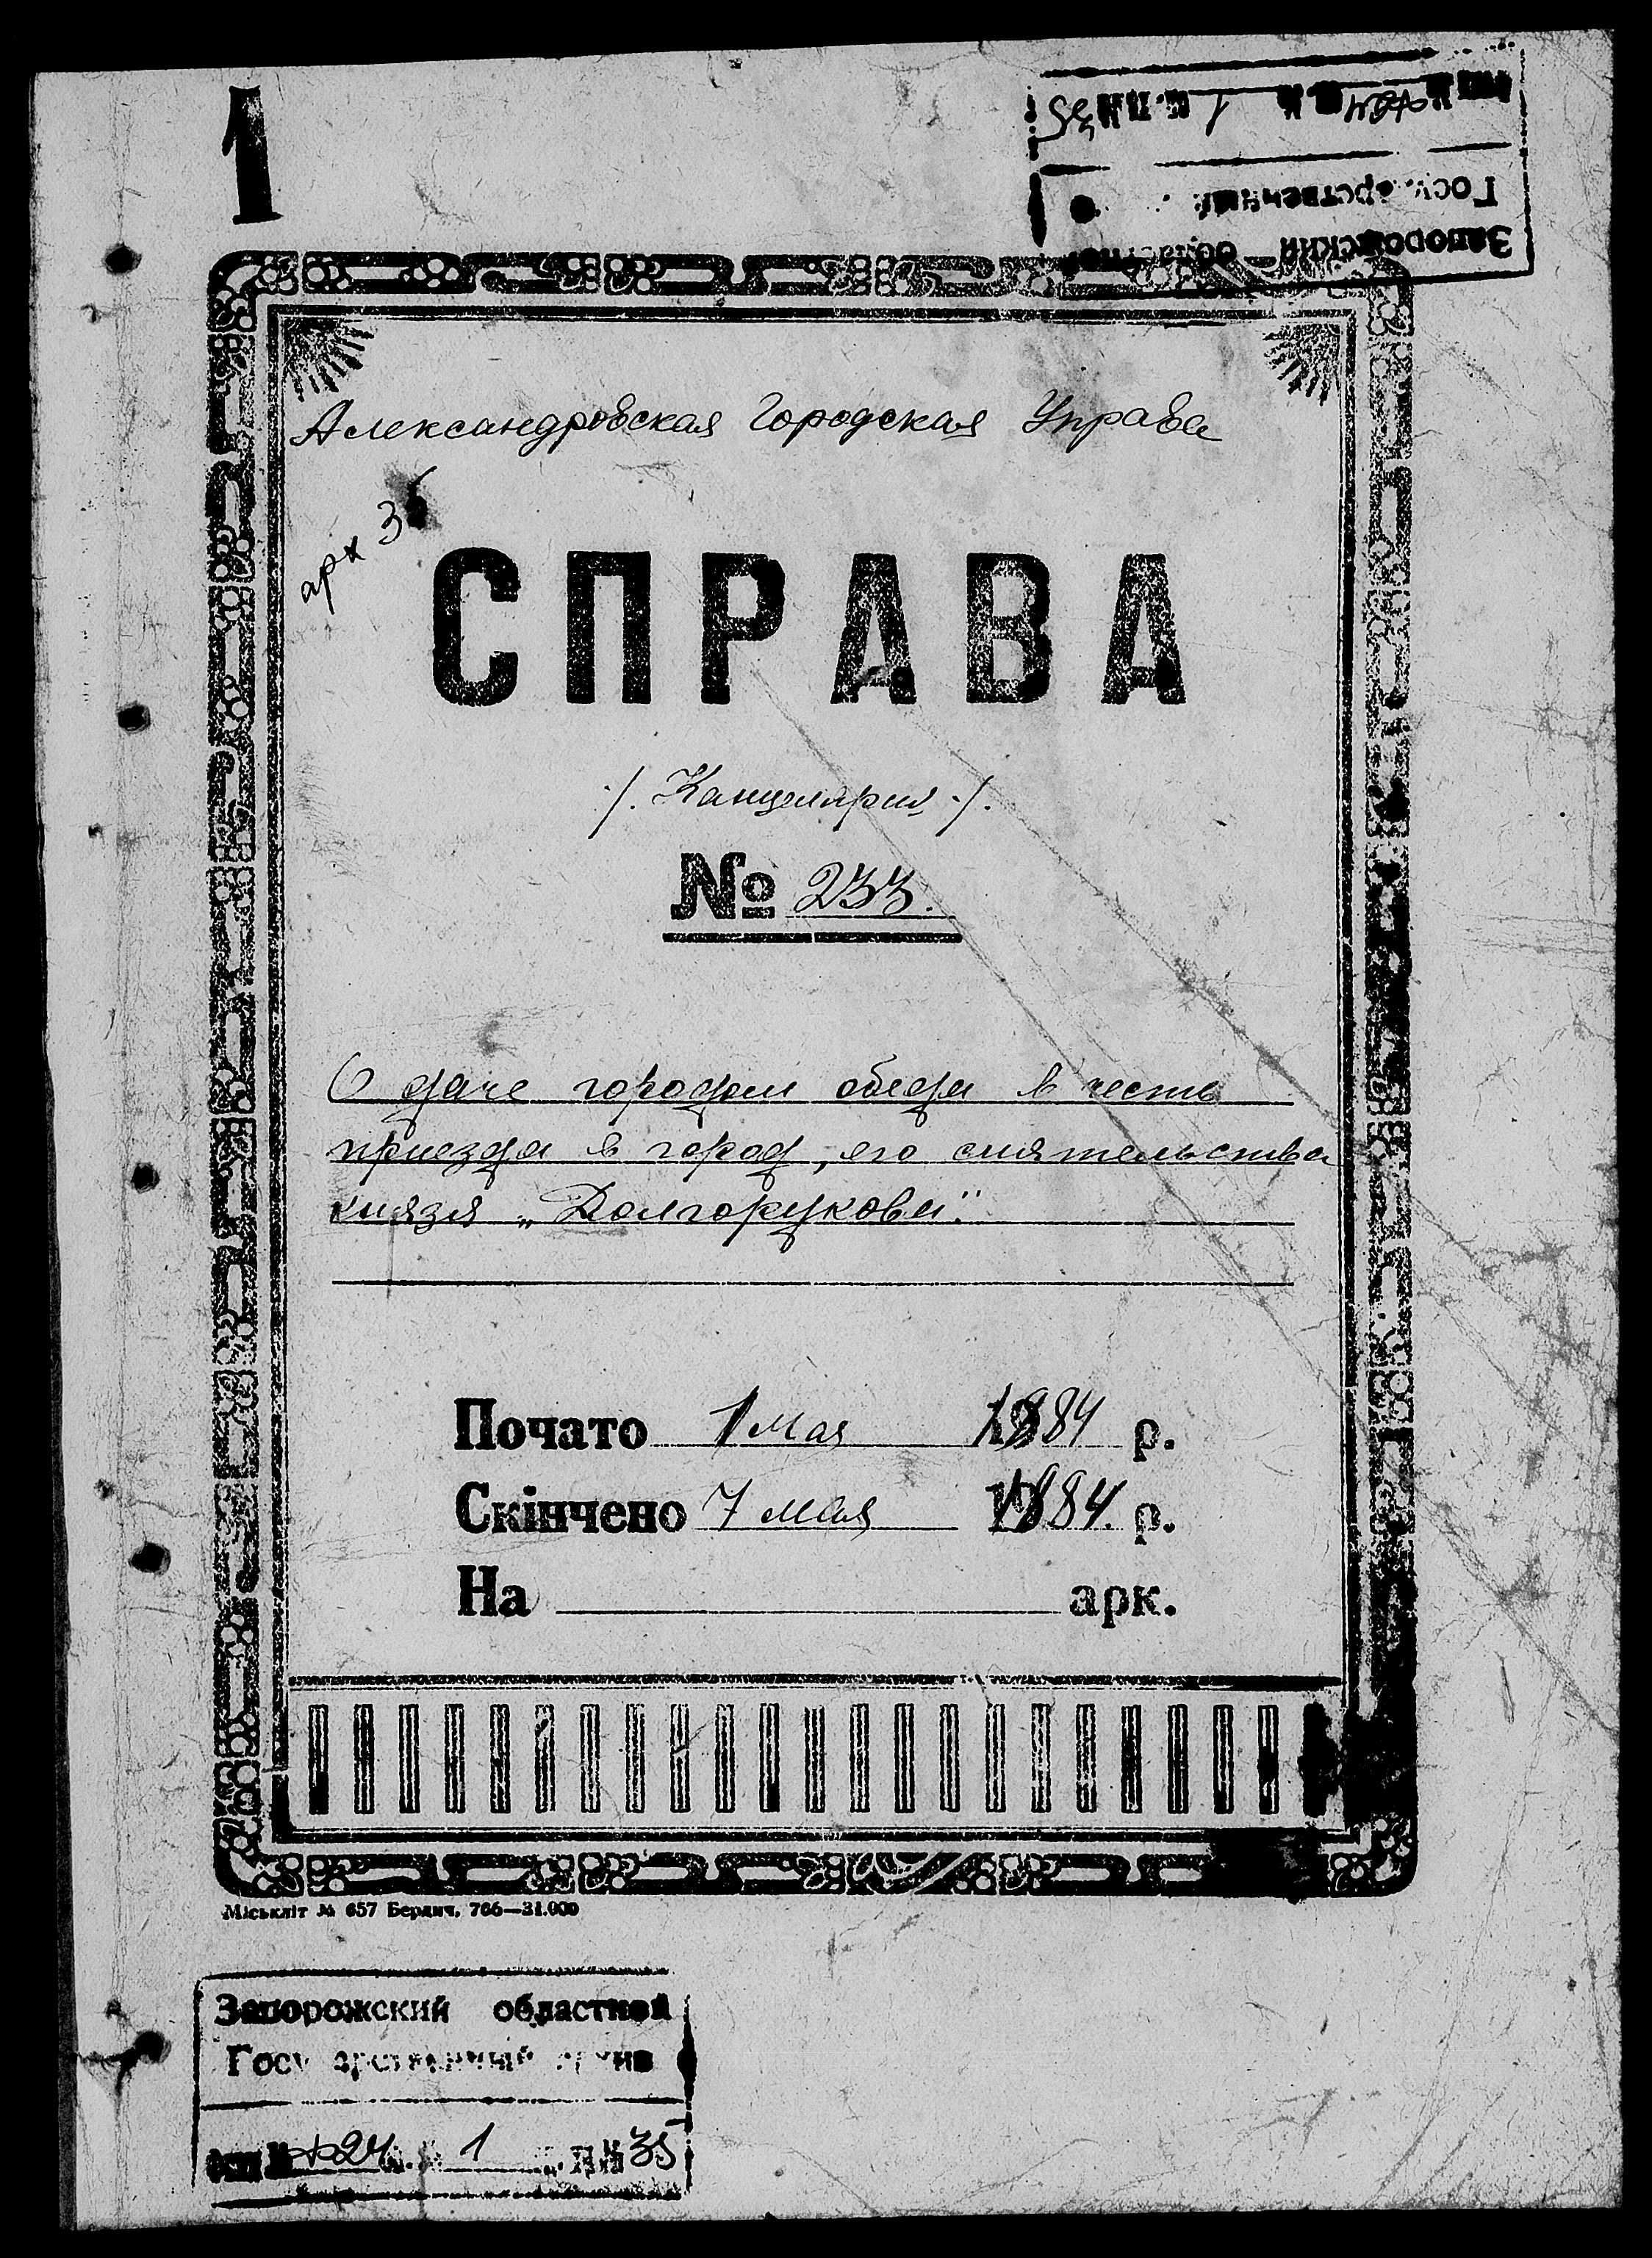 1
Запорожский областной
Государственный
1
35
Александровская Городская Управа
арк 36
СПРАВА
·/. Канцелярия ·/.
№ 233.
О даче городом обеда в честь
приезда в город, его сиятельства
князя „Долгорукова".
Почато 1 мая 1884 р.
Скінчено 7 мая 1884. р.
На арк.
Міськліт № 657 Бердич. 766—31.000
Запорожский областной
Государственный архив
24 1 35